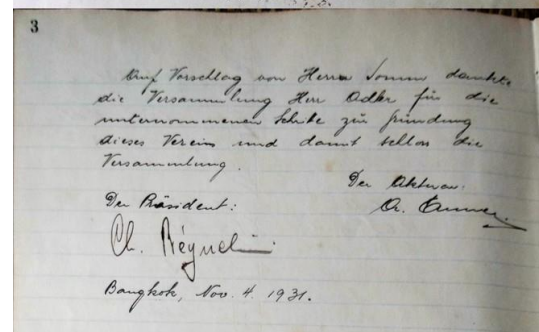 3
Auf Vorschlag von Herrn Somm dankte
die Versammlung Herr Adler für die
unternommenen Schritte zur Gründung
dieses Vereins und damit schloss die
Versammlung.
Der Aktuar:
Der Präsident:
Ch. Béguelin
Bangkok, Nov. 4. 1931.